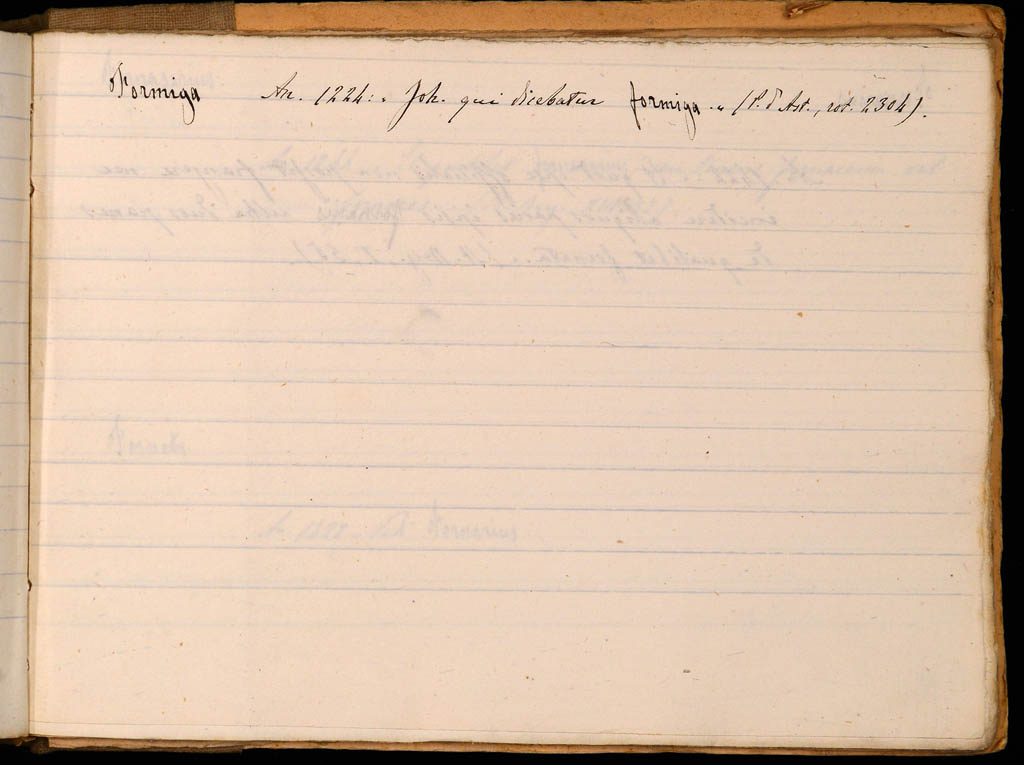 Formiga An. 1224: « Joh. qui dicebatur formiga. » (P. d'Ast., rot. 2304).